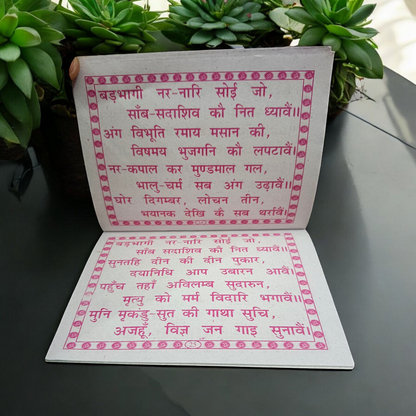 बड़भागी नर-नारि सोई जो,
साँब-सदाशिव कौ नित ध्यावैं।।
अंग विभूति रमाय मसान की,
विषमय भुजगनि कौ लपटावैं।।
नर-कपाल कर मुण्डमाल गल,
भालु-चर्म सब अंग उढ़ावैं।।
घोर दिगम्बर, लोचन तीन,
भयानक देखि कै सब थर्रावैं।।
बड़भागी नर-नारि सोई जो,
साँब सदाशिव कौ नित ध्यावैं।।
सुनतहि दीन की दीन पुकार,
दयानिधि आप उबारन आवैं।
पहुँच तहाँ अविलम्ब सुदारुन,
मृत्यु को मर्म विदारि भगावैं।।
मुनि मृकंडु-सुत की गाथा सुचि,
अजहूँ, विज्ञ जन गाइ सुनावैं।